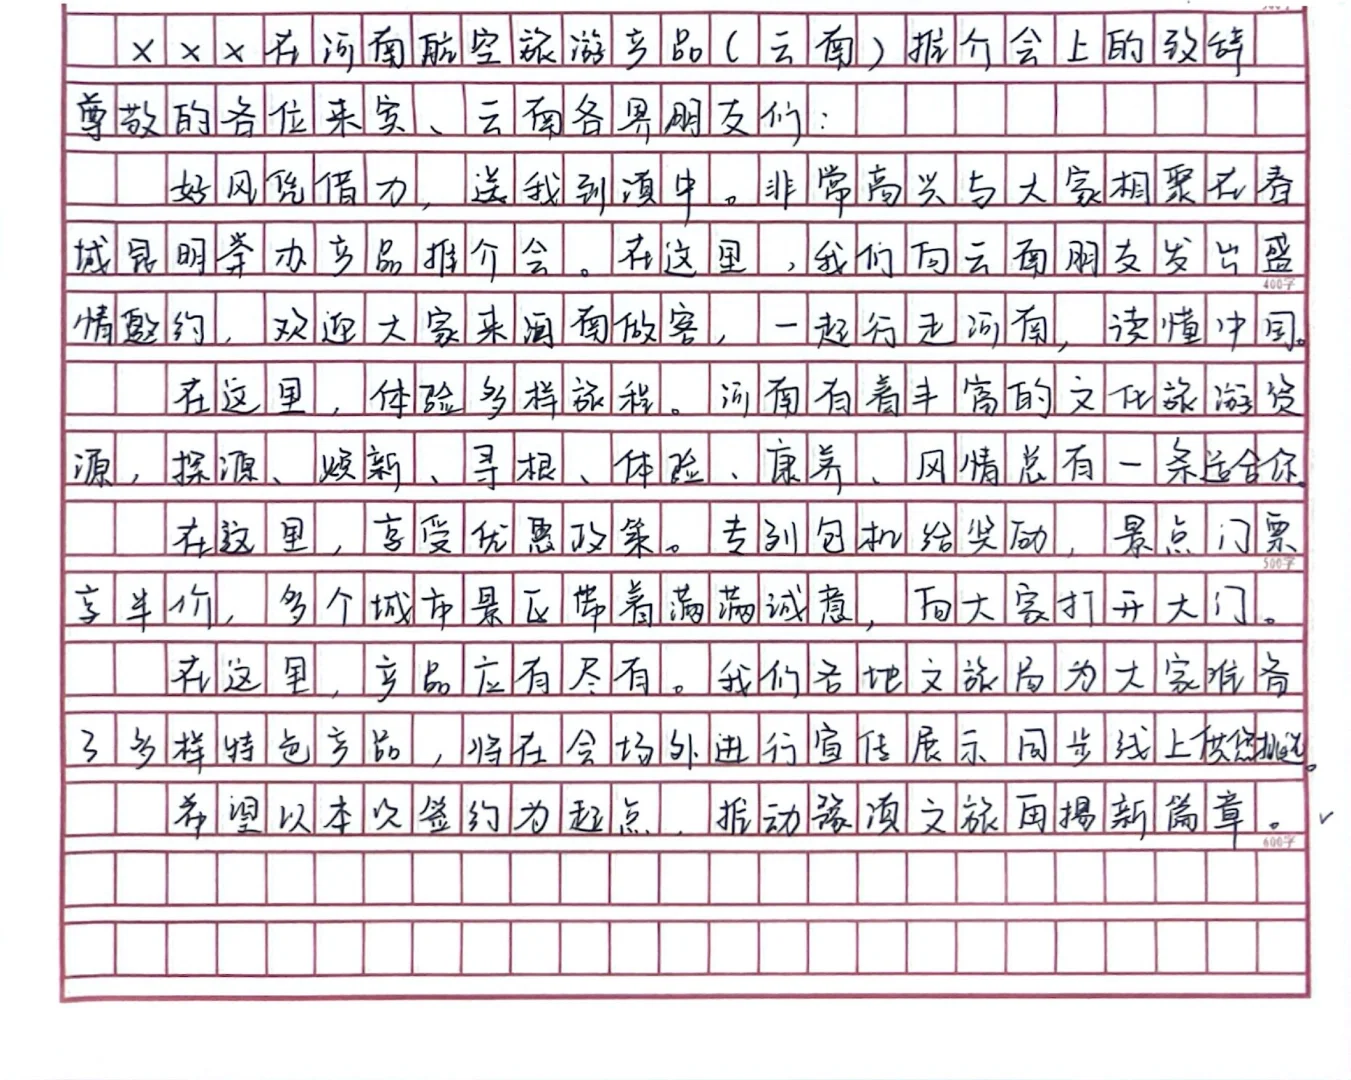 ×××在河南航空旅游产品(云南)推介会上的致辞
尊敬的各位来宾、云南各界朋友们:
好风凭借力,送我到滇中。非常高兴与大家相聚在春
城昆明举办产品推介会。在这里,我们向云南朋友发出盛
400字
情邀约,欢迎大家来河南做客,一起行走河南,读懂中国。
在这里,体验多样旅程。河南有着丰富的文化旅游资
源,探源、焕新、寻根、体验、康养、风情总有一条适合你。
在这里,享受优惠政策。专列包机给奖励,景点门票
500字
享半价,多个城市景区带着满满诚意,向大家打开大门。
在这里,产品应有尽有。我们各地文旅局为大家准备
了多样特色产品,将在会场外进行宣传展示同步线上供您挑选。
希望以本次签约为起点,推动豫滇文旅再揭新篇章。
600字